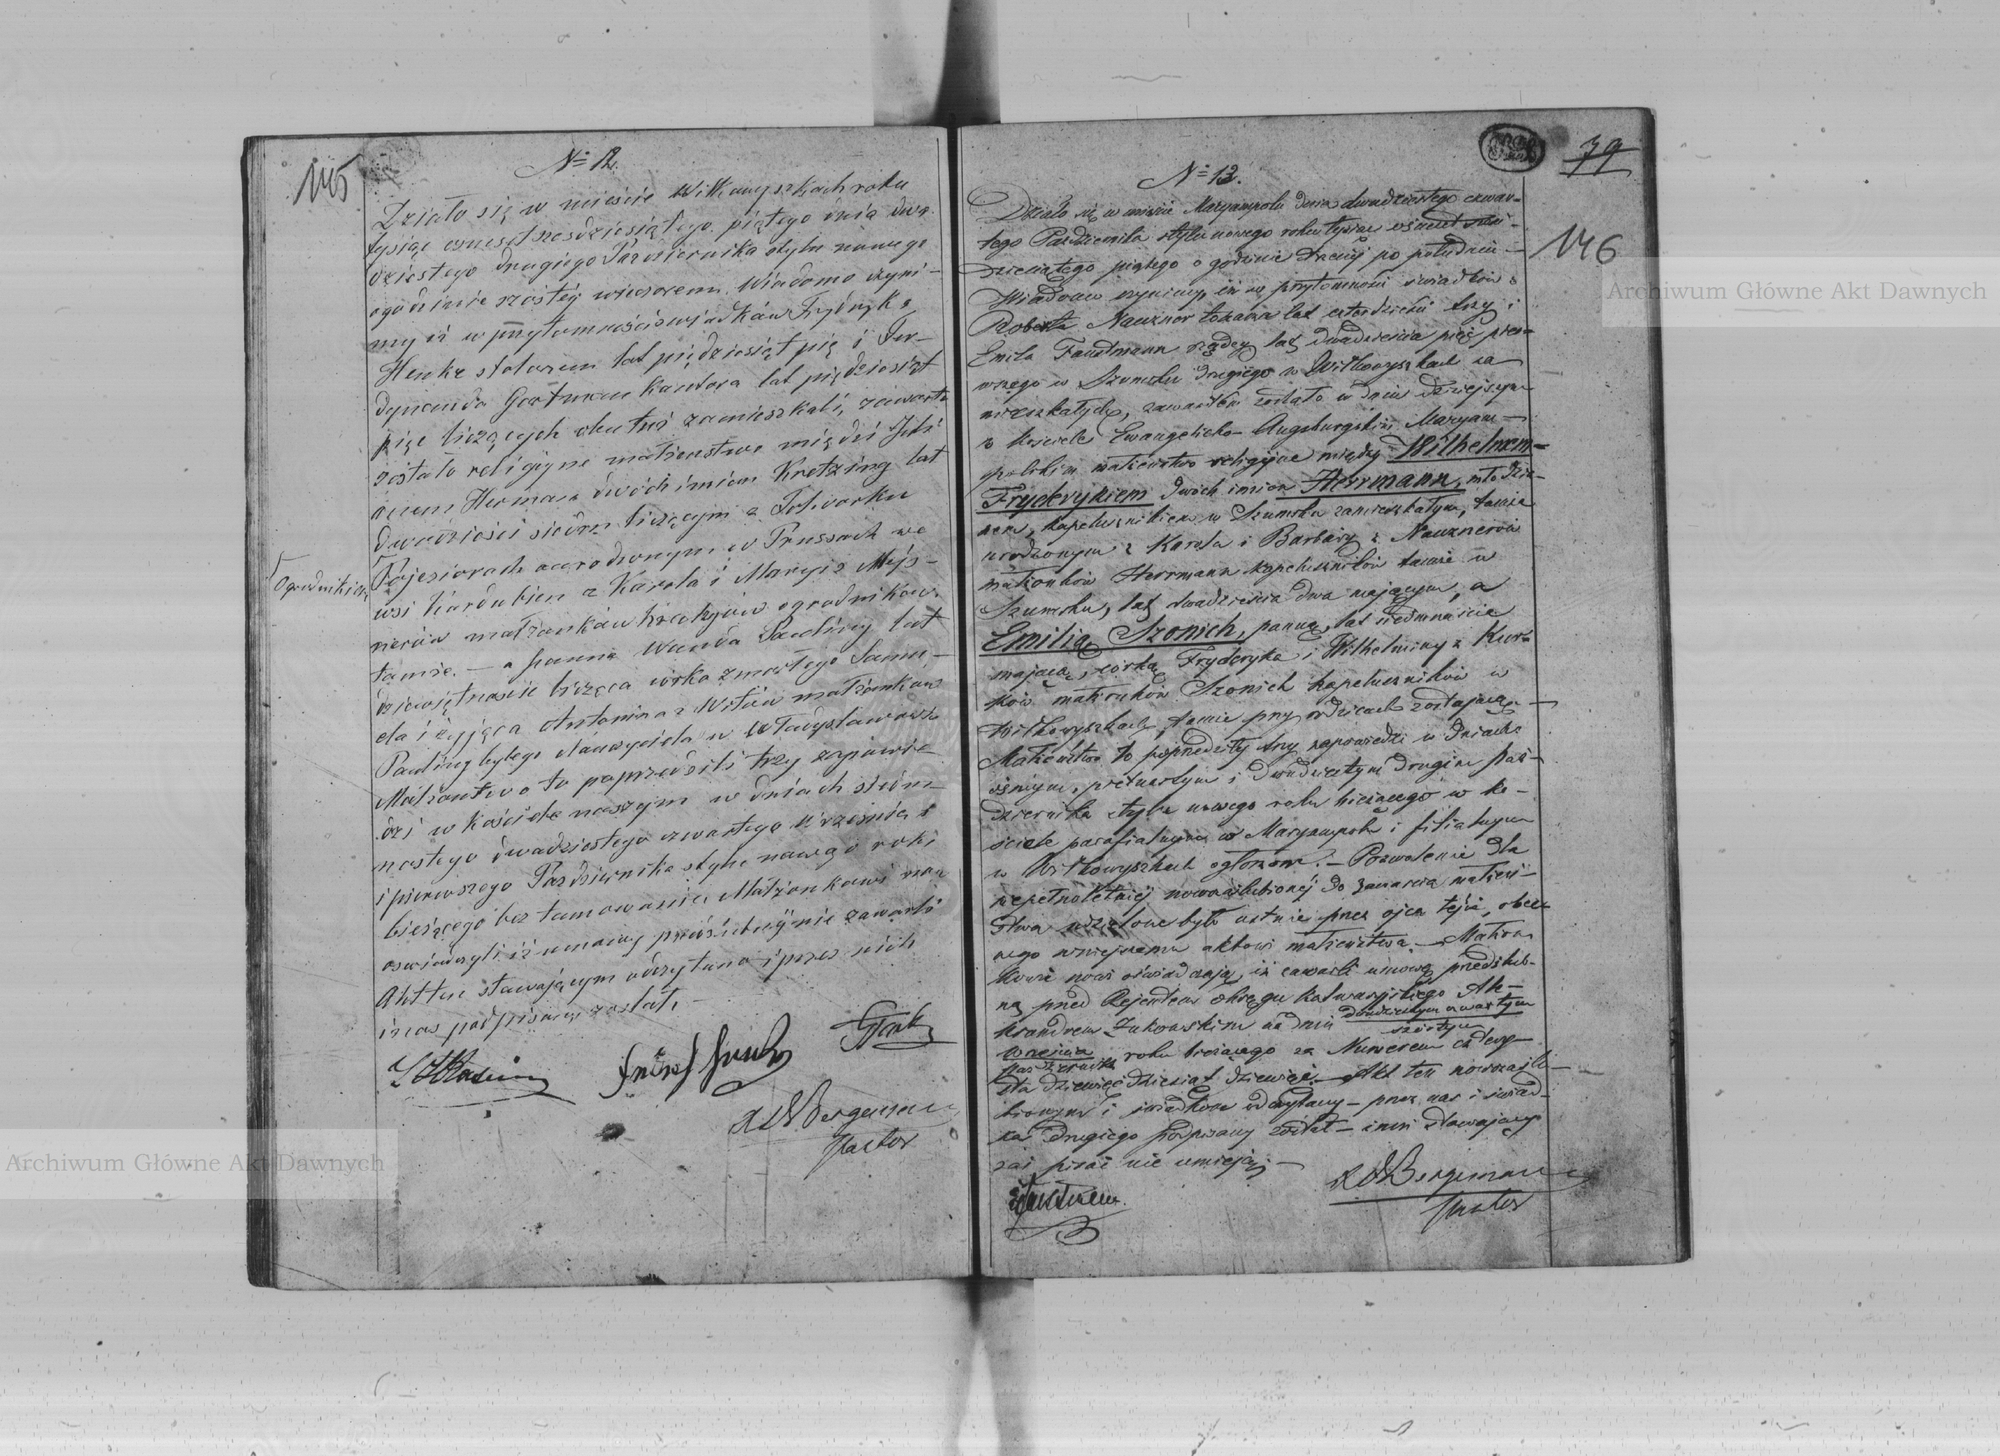 145
No 12.
Działo się w mieście Wiłkowyszkach roku
tysiąc osiemset sześdziesiątego piątego dnia dwu-
dziestego drugiego Października stylu nowego
o godzinie szóstej wieczorem. Wiadomo czyni-
my iż w przytomności świadków Frydryka
Henke stolarza lat pięćdziesiąt pię i Fer-
dynanda Gortman kantora lat pięćdziesiąt
pięc liczących obu tuś zamieszkali, zawarte
zostało religijne małżeństwo między Juli
uszem Herman dwóch imion Kretzing lat
dwadzieścia siedm liczącym z Folwarku
Pojeziorach a urodzonym w Prussach we
wsi z Karola i Maryi z
małżonków ogrodników
Ogrodnikiem
tamże. — a panną Wandą Pauliny lat
dziewiętnaście liczącą córka zmarłego Samu-
ela i żyjąca Antonina z małżonków
Pauling byłego Nauczyciela w Władysławowie
Małżeństwo to poprzedziły trzy zapowie-
dzi w kościele naszym w dniach siedm-
nastego dwudziestego czwartego Września i
i pierwszego Października stylu nowego roku
bieżącego bez tamowania. Małżonkowie nowi
oswiadczyli iż umowy przedślubnej nie zawarli
Akt ten stawającym odczytano i przez nich
i nas podpisany został. —
R A Bergemann
Pastor
79
146
No 13.
Działo się w mieście Maryampolu dnia dwudziestego czwar-
tego Października stylu nowego roku tysiąc osiemset sześć-
dziesiątego piątego o godzinie trzeciej po południu —
Wiadomo czyniemy, iż w przytomności świadków
Roberta Nauzner tokarza lat czterdzieści trzy i
Emila Faustmann rządcy lat dwadzieścia pięć pier-
wszego w Szumsku drugiego w Wiłkowyszkach za
mieszkałych, zawartem zostało w dniu dzisiejszym
w kościele Ewangelicko-Augsburgskim Maryam-
polskim małżeństwo religijne między Wilhelmem-
Fryderykiem dwóch imion Herrmann, młodzia-
nem, kapelusznikiem w Szumsku zamieszkałym, tamże
urodzonym z Karola i Barbary z Nauznerów
małżonków Herrmann kapeluszników tamże w
Szumsku, lat dwadzieścia dwa mającym, a
Emilią Szonich, panną, lat siedmnaście
mającą, córką Fryderyka i Wilhelminy z Kur-
ków małżonków Szonich kapeluszników w
Wiłkowyszkach, tamże przy rodzicach zostającą —
Małżeństwo to poprzedziły trzy zapowiedzi w dniach
ósmym, piętnastym i dwudziestym drugim Paź-
dziernika stylu nowego roku bieżącego w ko-
ściele parafialnym w Maryampolu i filialnym
w Wiłkowyszkach ogłoszone. — Pozwolenie dla
niepełnoletniej nowozaślubionej do zawarcia małżeń-
stwa udzielone było ustnie przez ojca tejże, obec-
nego niniejszemu aktowi małżeństwa. — Małżon-
kowie nowi oświadczają, iż zawarli umowę przedślub-
ną przed Rejentem okręgu Kalwaryjskiego Ale-
ksandrem Żukowskim na dniu dwudziestym czwartym
szóstym
Września roku bieżącego za Numerem czterys-
Października
sta dziewięćdziesiąt dziewięć. — Akt ten nowozaślu-
bionym i świadkom odczytany — przez nas i świad-
ka drugiego podpisany został — inni stawający
zaś pisać nie umieją. —
R A Bergemann
Pastor
Archiwum Główne Akt Dawnych
Archiwum Główne Akt Dawnych